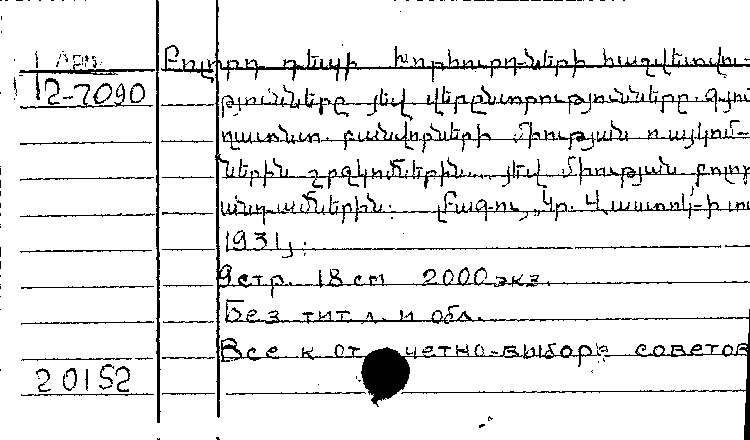 1 Арм.
12-7090
Բոլորդ դեպի խորհուրդների հաշվետվու-
թյունները յեվ վերընտրությունները. Գյու
ղատնտ. բանվորների միության
ներին շրջկոմներին յեվ միության բոլոր
անդամներին: Բագու,
1931թ.:
9 стр. 18 см 2000 экз.
Без тит л. и обл.
Все к отчетно-выборв советов
20152